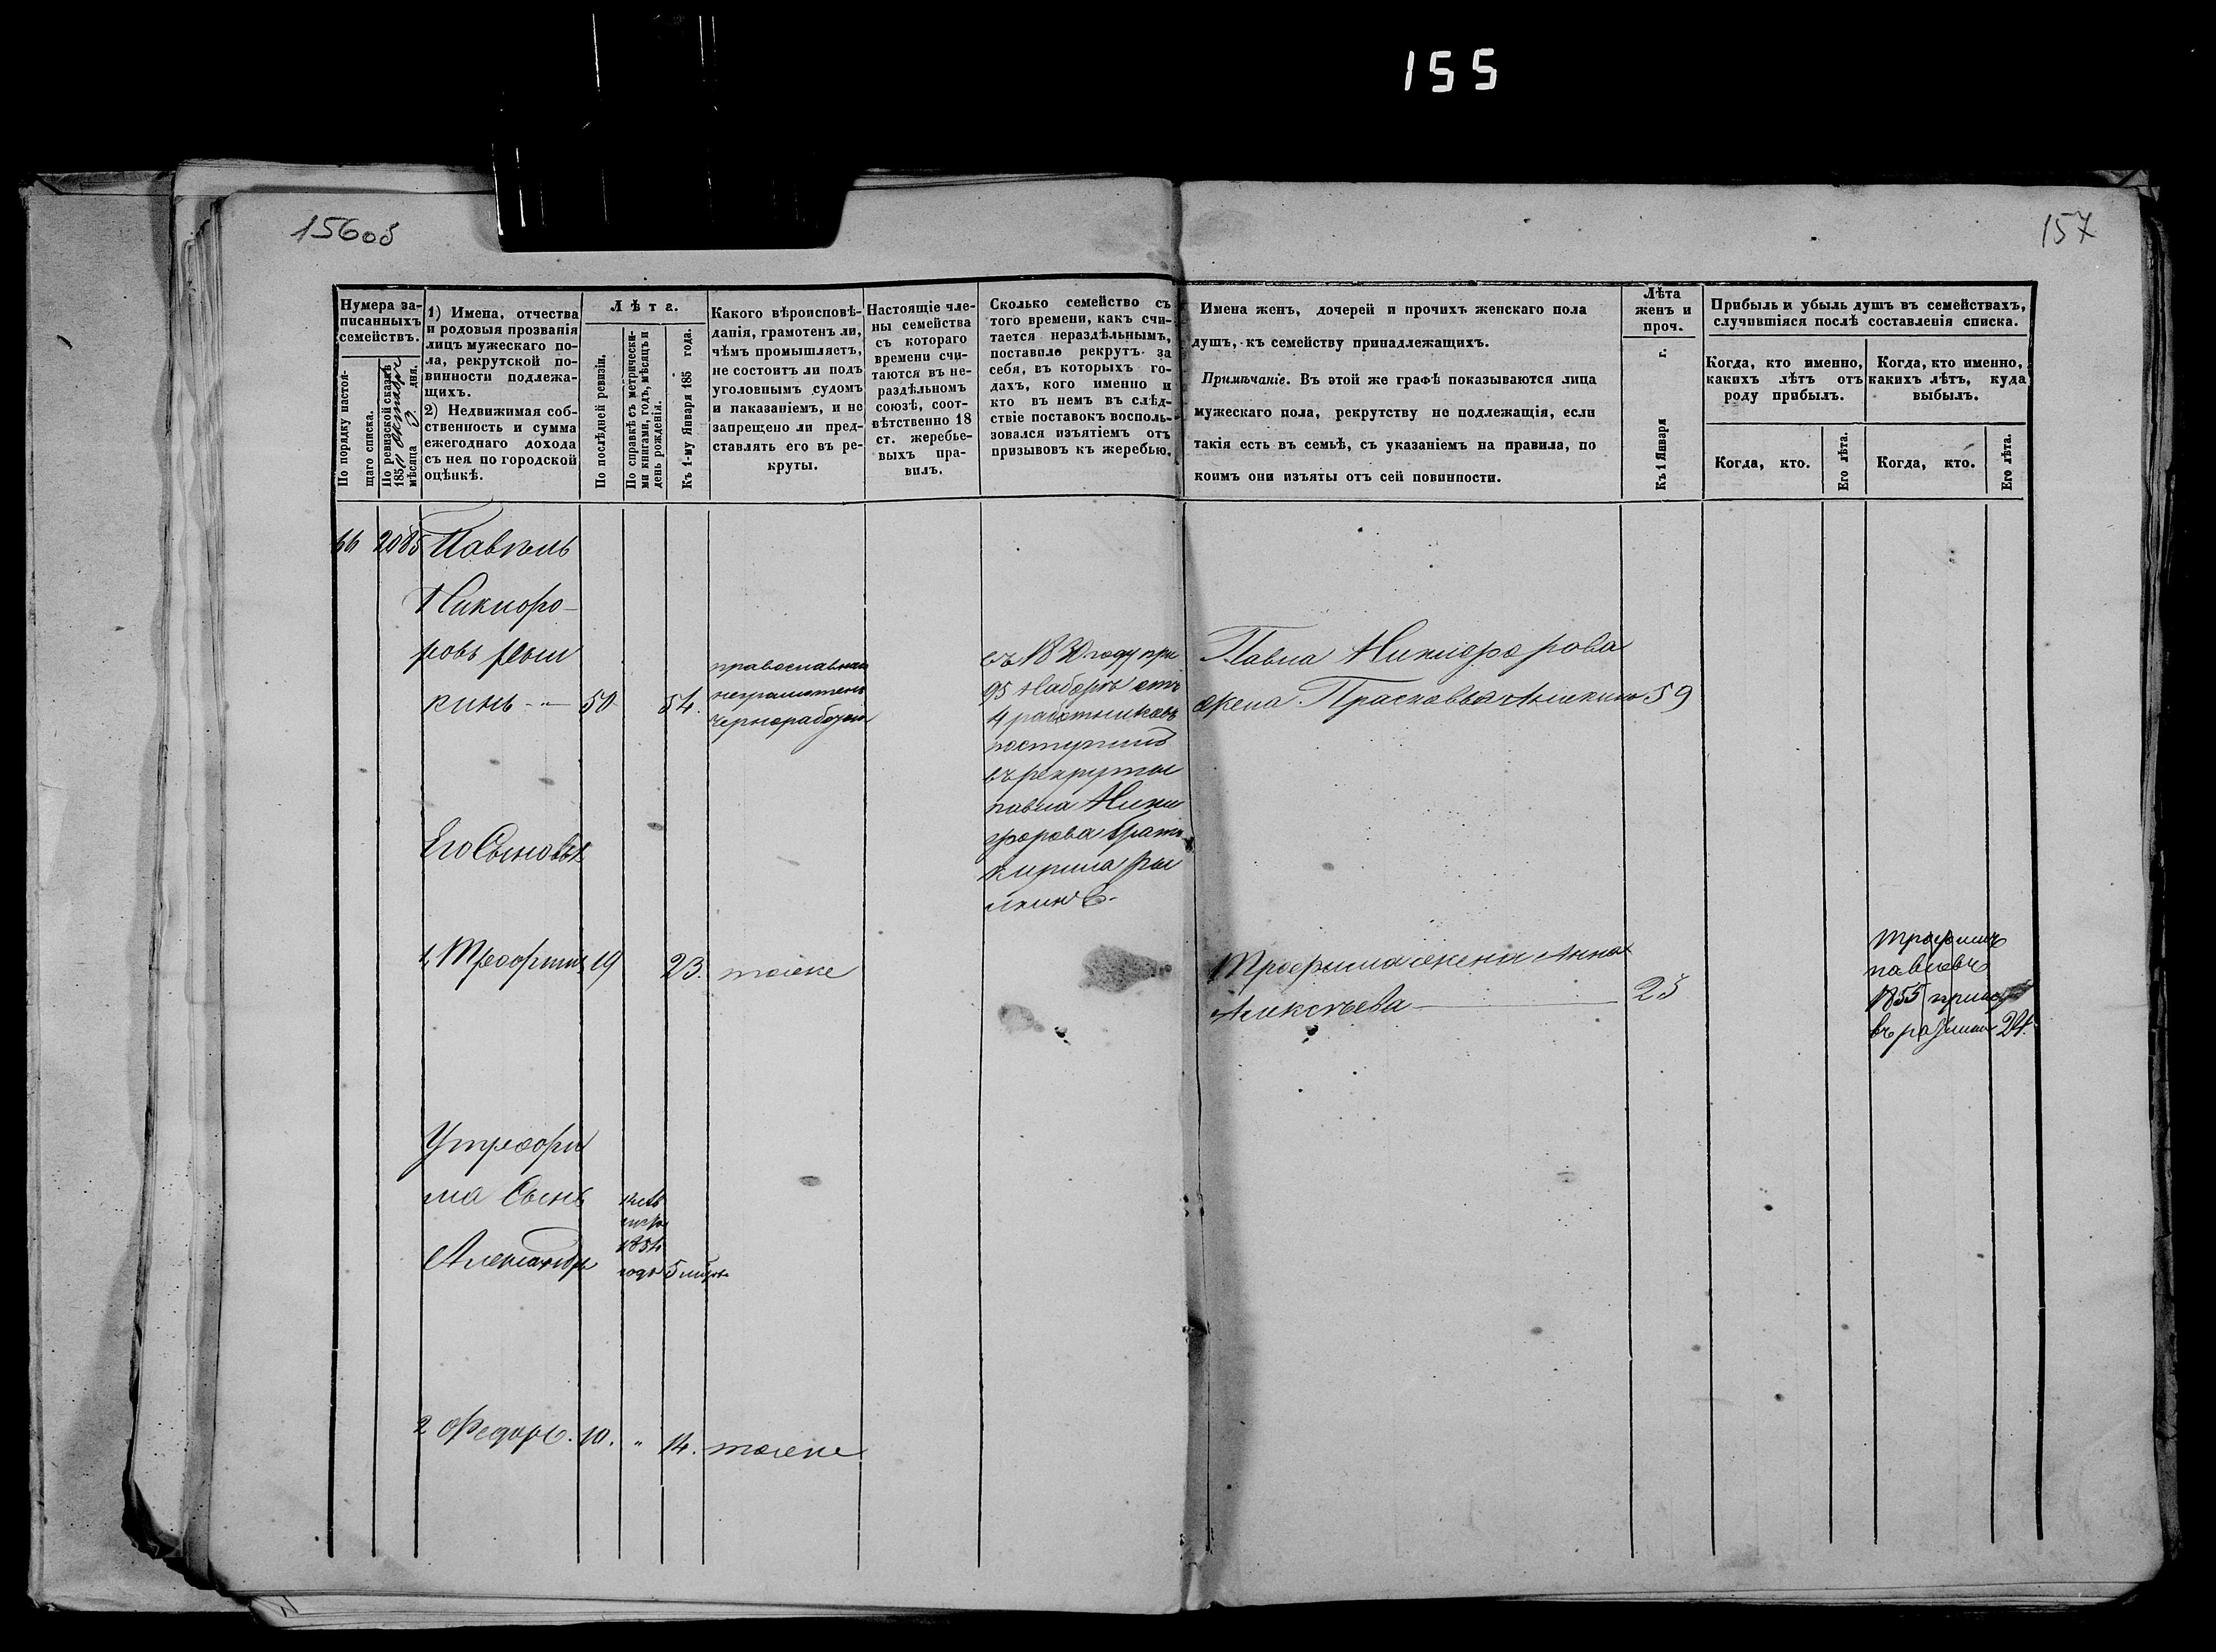 155
156об
157
Нумера за-
писанныхъ
семействъ.
По порядку настоя-
щаго списка.
По ревизской сказкѣ
185 октября
мѣсяца 3 дня.
1) Имена, отчества
и родовыя прозванія
лицъ мужескаго по-
ла, рекрутской по-
винности подлежа-
щихъ.
2) Недвижимая соб-
ственность и сумма
ежегоднаго дохода
съ нея по городской
оцѣнкѣ.
Лѣта.
По послѣдней ревизіи.
По справкѣ съ метрически-
ми книгами, годъ, мѣсяцъ и
день рожденія.
Къ 1-му Января 185 года.
Какого вѣроисповѣ-
данія, грамотенъ ли,
чѣмъ промышляетъ,
не состоитъ ли подъ
уголовнымъ судомъ
и наказаніемъ, и не
запрещено ли пред-
ставлять его въ ре-
круты.
Настоящіе чле-
ны семейства
съ котораго
времени счи-
таются въ не-
раздѣльномъ
союзѣ, соот-
вѣтственно 18
ст. жеребье-
выхъ пра-
вилъ.
Сколько семейство съ
того времени, какъ счи-
тается нераздѣльнымъ,
поставило рекрутъ за
себя, въ которыхъ го-
дахъ, кого именно и
кто въ немъ въ слѣд-
ствіе поставокъ восполь-
зовался изъятіемъ отъ
призывовъ къ жеребью.
Имена женъ, дочерей и прочихъ женскаго пола
душъ, къ семейству принадлежащихъ.
Примѣчаніе. Въ этой же графѣ показываются лица
мужескаго пола, рекрутству не подлежащія, если
такія есть въ семьѣ, съ указаніемъ на правила, по
коимъ они изъяты отъ сей повинности.
Лѣта
женъ и
проч.
Къ 1 Января г.
Прибыль и убыль душъ въ семействахъ,
случившіяся послѣ составленія списка.
Когда, кто именно,
какихъ лѣтъ отъ
роду прибылъ.
Когда, кто именно,
какихъ лѣтъ, куда
выбылъ.
Когда, кто.
Его лѣта.
Когда, кто.
Его лѣта.
66 2085 Павелъ
Никифо-
ровъ
кинъ 50 54.
православнаго
неграмотенъ
чернорабочій
въ 1830 году при
95 наборѣ отъ
4 работниковъ
поступилъ
въ рекруты
павла Ники
форова братъ
кирила
Павла Никифорова
жена Прасковья 59
Его Сыновья
1, Трофимъ 19 23. тоже
Трофима жена Анна
Алексѣева 23
Трофимъ
павловъ
1855
въ 24.
У трофи
ма Сынъ
Александръ
1854
года 5 мѣся
2 Федоръ. 10. " 14. тоже